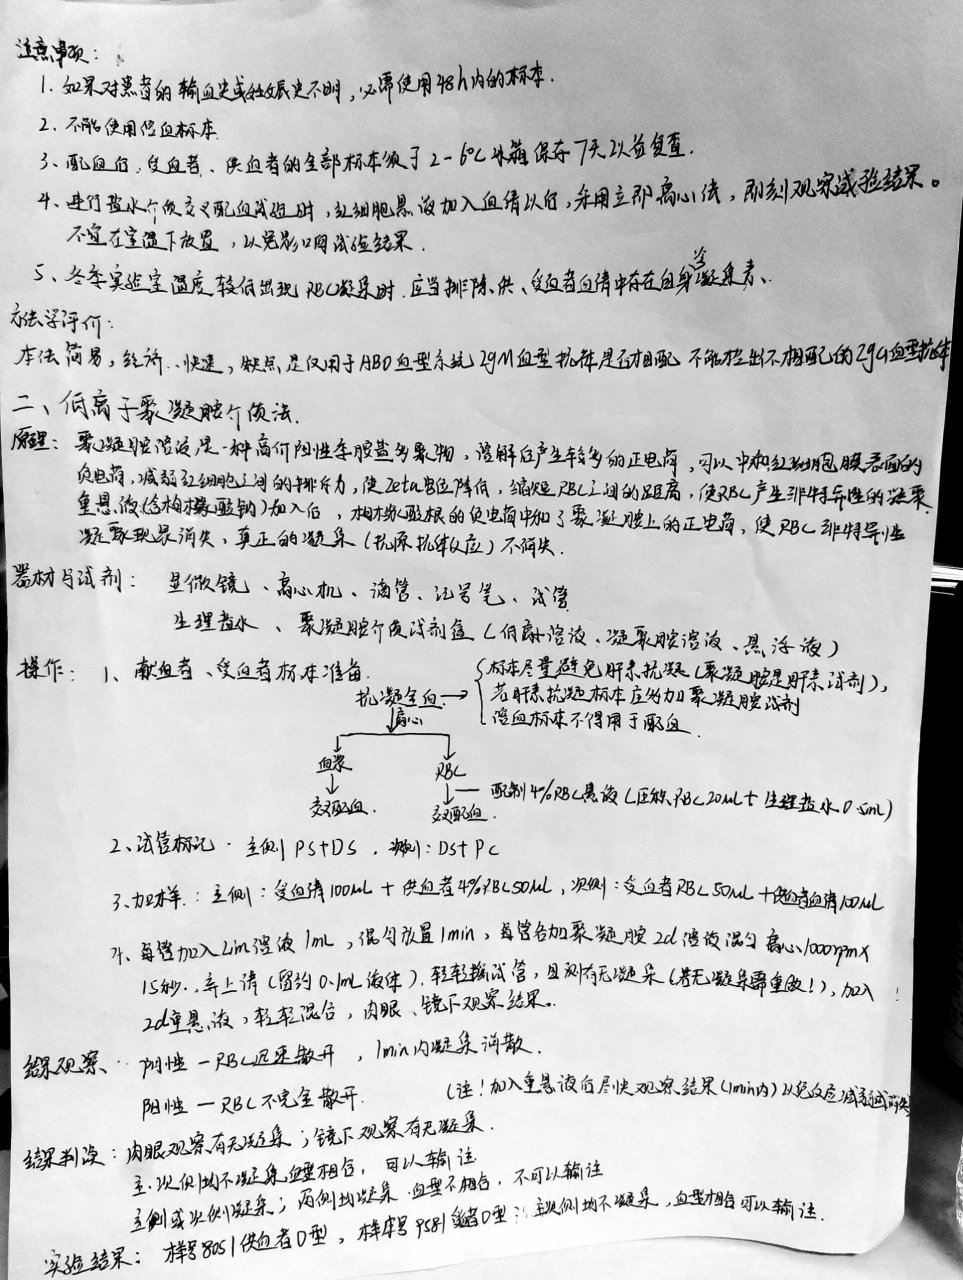 注意事项：
1. 如果对患者的输血史或妊娠史不明，必须使用48h内的标本.
2. 不能使用溶血标本
3. 配血后，受血者、供血者的全部标本须于2-6℃冰箱保存7天以益复查.
4. 进行盐水介质交叉配血试验时，红细胞悬液加入血清以后，采用立即离心法，即刻观察试验结果。
不宜在室温下放置，以免影响试验结果.
5. 冬季实验室温度较低出现RBC凝集时，应当排除供、受血者血清中存在自身冷凝集素、
方法学评价：
本法简易，经济、快速，缺点是仅用于ABO血型系统IgM血型抗体是否相配 不能检出不相配的IgG血型抗体
二、低离子聚凝胺介质法.
原理：聚凝胺溶液是一种高价阳性季胺盐多聚物，溶解后产生较多的正电荷，可以中和红细胞膜表面的
负电荷，减弱红细胞之间的排斥力，使Zeta电位降低，缩短RBC之间的距离，使RBC产生非特异性的凝聚.
重悬液（含枸橼酸钠）加入后，枸橼酸根的负电荷中和了聚凝胺上的正电荷，使RBC非特异性
凝聚现象消失，真正的凝集（抗原抗体反应）不消失.
器材与试剂：显微镜、离心机、滴管、记号笔、试管
生理盐水、聚凝胺介质试剂盒（低离子溶液、凝聚胺溶液、悬浮液）
操作：1、献血者、受血者标本准备.
抗凝全血 → 标本尽量避免肝素抗凝（聚凝胺是肝素试剂），
若肝素抗凝标本应多加聚凝胺试剂
溶血标本不得用于配血.
↓离心
血浆 RBC
↓ ↓ — 配制4%RBC悬液（压积RBC20uL+生理盐水0.5mL）
交叉配血. 交叉配血.
2、试管标记. 主侧PS+DS. 次侧：DS+PC
3、加样：主侧：受血清100uL + 供血者4%RBC50uL，次侧：受血者RBC50uL+供血者血清100uL
4、每管加入Lim溶液1mL，混匀放置1min，每管各加聚凝胺2d溶液混匀离心1000rpm×
15秒.，弃上清（留约0.1mL液体）.轻轻摇试管，目测有无凝集（若无凝集需重做！），加入
2d重悬液，轻轻混合，肉眼、镜下观察结果.
结果观察、阴性—RBC迅速散开，1min内凝集消散.
阳性—RBC不完全散开. （注！加入重悬液后尽快观察结果（1min内）以免反应减弱或消失
结果判读：肉眼观察有无凝集；镜下观察有无凝集.
主.次侧均不凝集，血型相合，可以输注
主侧或次侧凝集；两侧均凝集.血型不相合，不可以输注
实验结果：样号8051供血者O型，样本号9581 O型；主次侧均不凝集，血型相合可以输注.